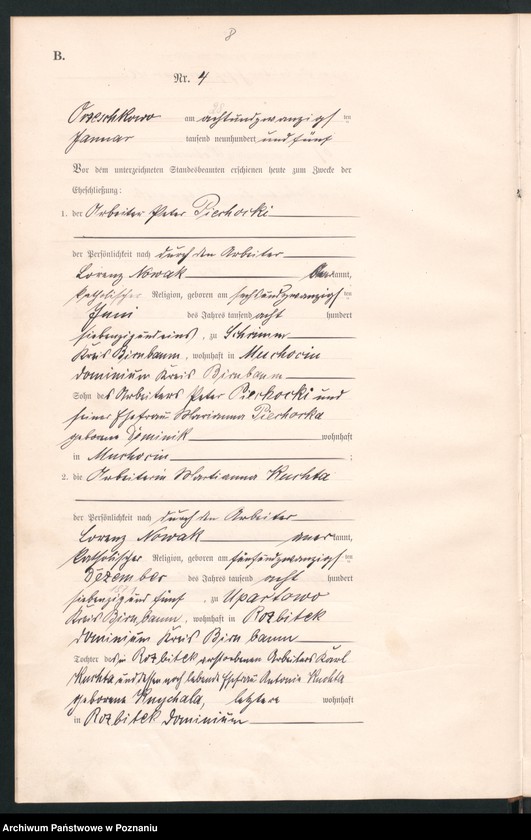 8
B.
Nr. 4
Orzeschkowo am achtundzwanzigsten
Januar tausend neunhundert und fünf
Vor dem unterzeichneten Standesbeamten erschienen heute zum Zwecke der
Eheschließung:
1. der Arbeiter Peter Piechocki
der Persönlichkeit nach durch den Arbeiter
Lorenz Nowak kannt,
katholischer Religion, geboren am sechsundzwanzigsten
Juni des Jahres tausend acht hundert
siebenzig und eins, zu Schrimm
Kreis Birnbaum, wohnhaft in Muchocin
dominium Kreis Birnbaum
Sohn des Arbeiters Peter Piechocki und
seiner Ehefrau Marianna Piechocka
geborene Dominik wohnhaft
in Muchocin ;
2. die Arbeiterin Marianna Kuchta
der Persönlichkeit nach durch den Arbeiter
Lorenz Nowak anerkannt,
katholischer Religion, geboren am fünfundzwanzigsten
Dezember des Jahres tausend acht hundert
siebenzig und fünf, zu Upartowo
Kreis Birnbaum, wohnhaft in Rozbitek
dominium Kreis Birnbaum
Tochter des in Rozbitek verstorbenen Arbeiters Karl
Kuchta und dessen noch lebende Ehefrau Antonie Kuchta
geborene Knychala, letztere wohnhaft
in Rozbitek dominium
Archiwum Państwowe w Poznaniu